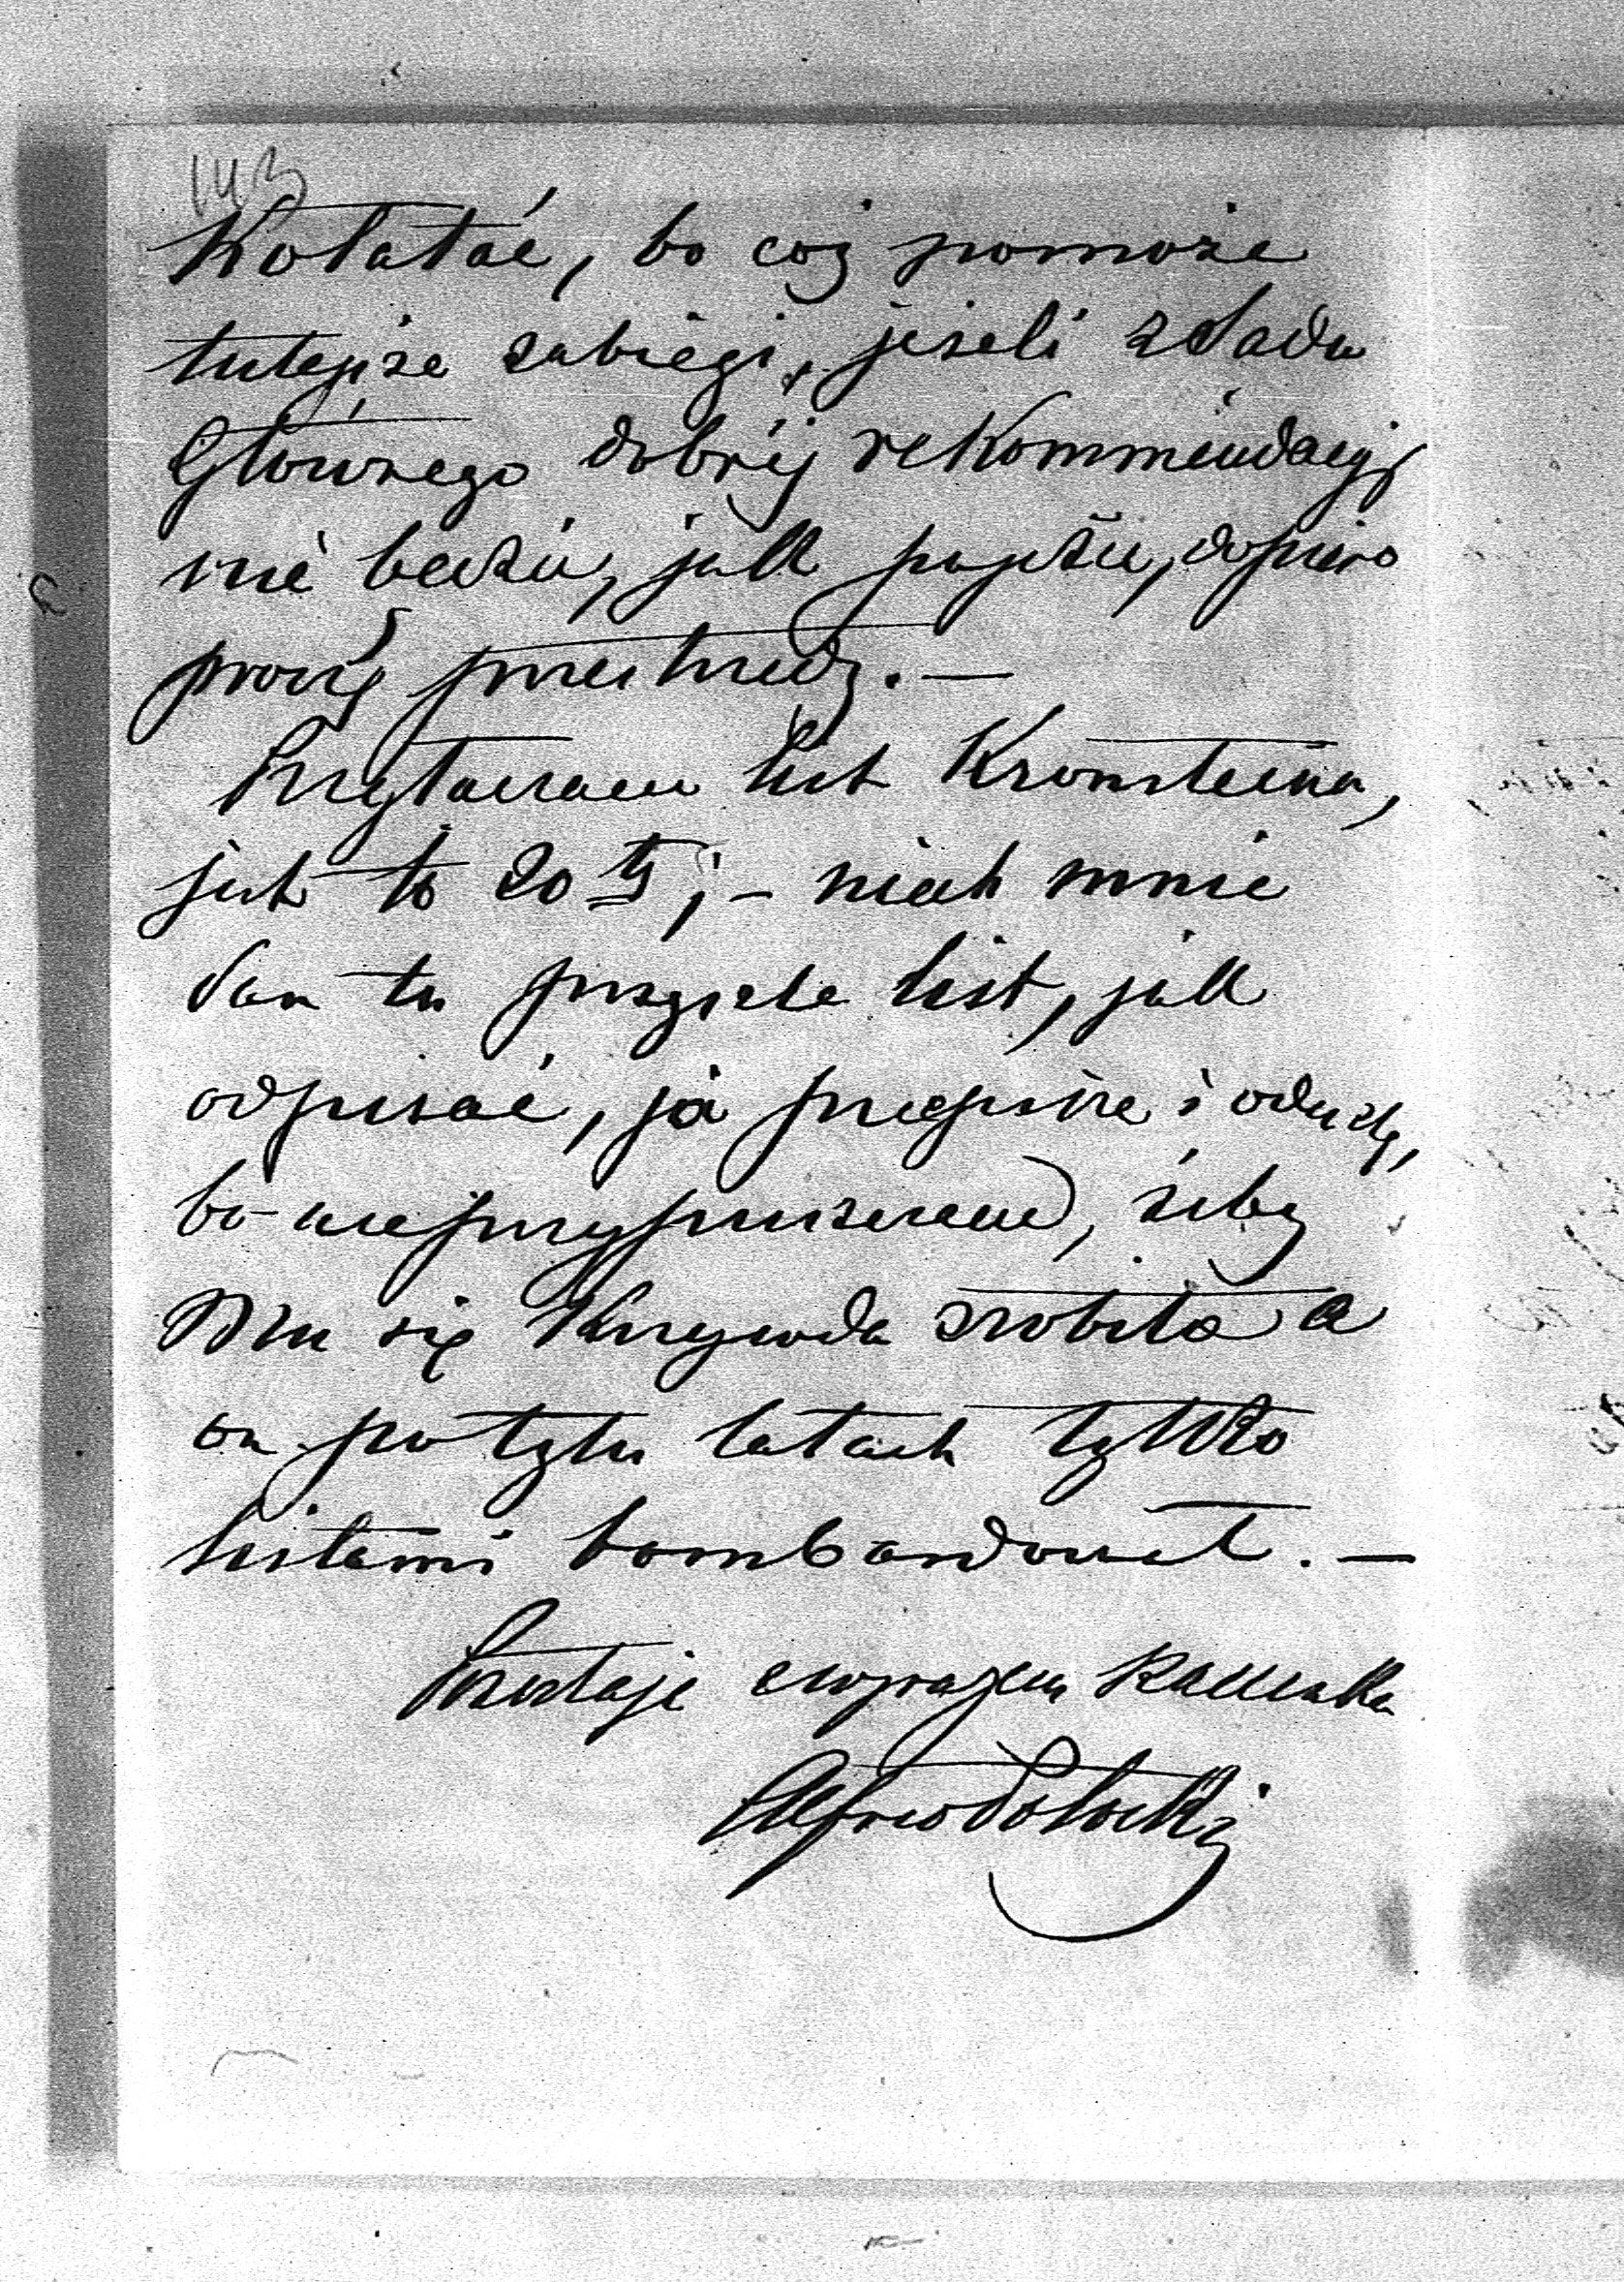 143
Kołatać, bo coż pomoże
tutejsze zabiegi, jeżeli z Sadu
Głównego dobréj rekommendacyi
nie bedzie, jak pojedzie, dopiero
proszę
Przytaczam list Kronsteina,
jest to 20ty; – niech mnie
Pan tu przyszle list, jak
odpisać, ja przepisze i odeszlę,
bo nieprzypuszczam, żeby
Mu się Krzywda zrobiła a
on po tylu latach tylko
listami bombardował. –
Zostaje z wyrazem szacunku
Alfred Potocki